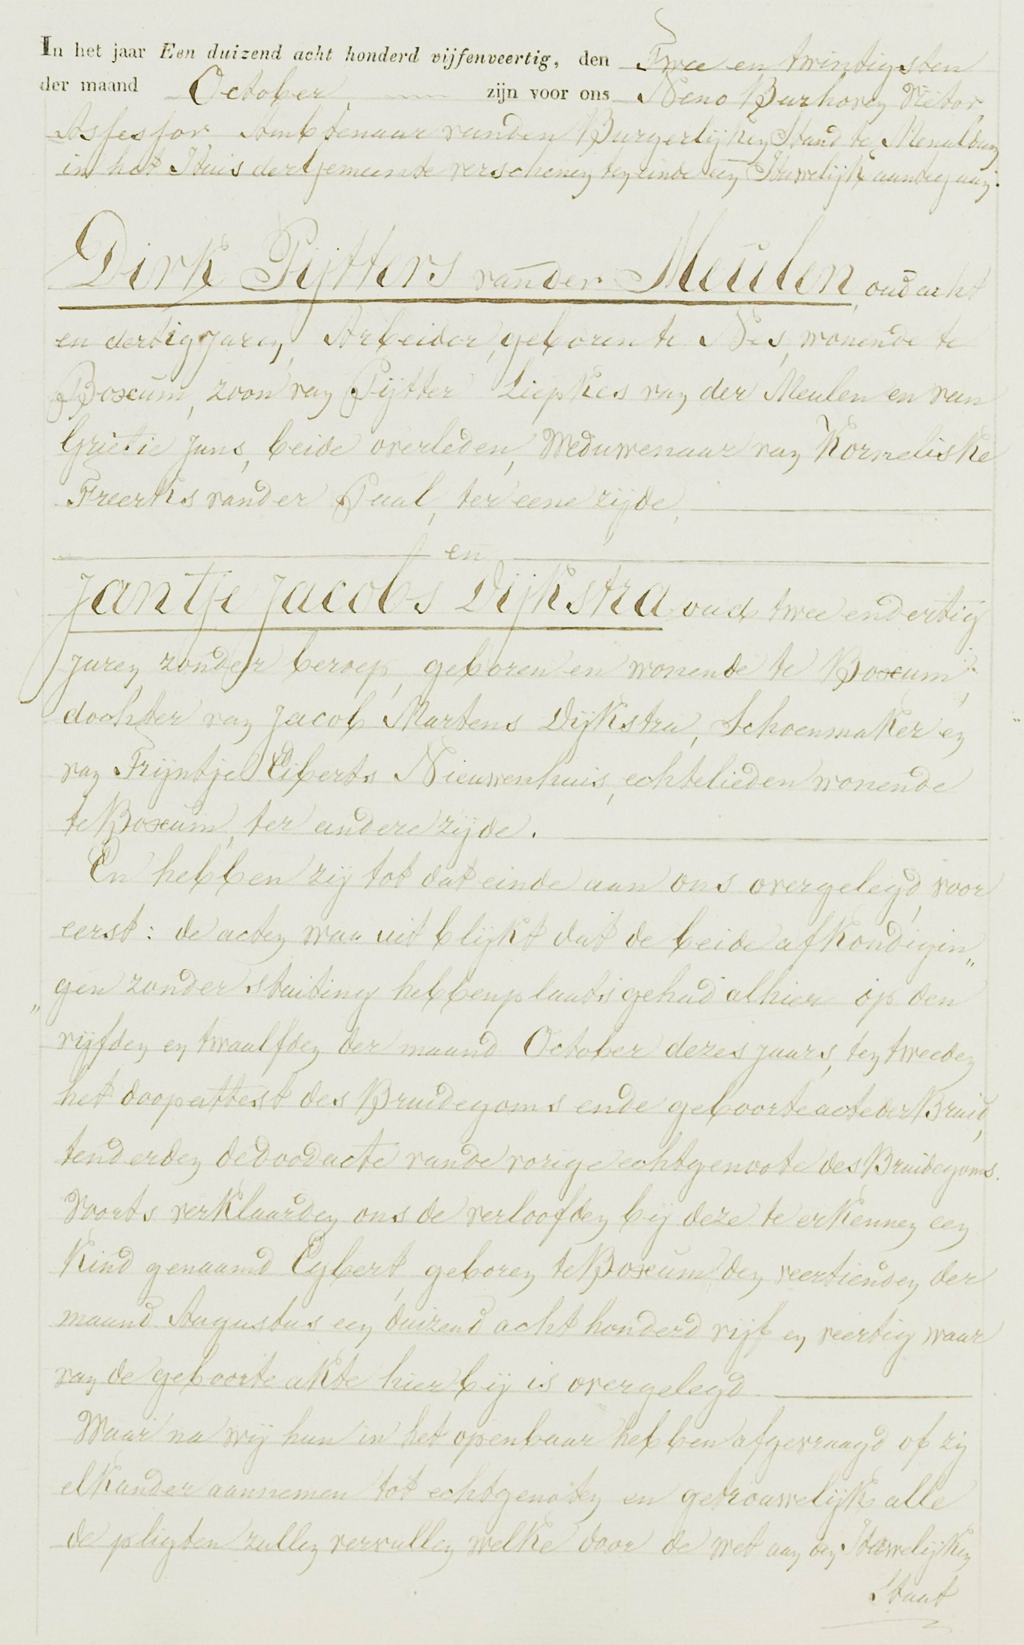 In het jaar Een duizend acht honderd vijfenveertig, den Twee en twintigsten
der maand October zijn voor ons Neno Burhoven Viëtor,
Assessor Ambtenaar van den Burgerlijken Stand te Menaldum
in het Huis der Gemeente verschenen ten einde een Huwelijk aantegaan:
Dirk Pijtters van der Meulen, oud acht
en dertig Jaren, Arbeider, geboren te Nes, wonende te
Boxum, zoon van Pijtter Liepkes van der Meulen en van
Grietje Jans, beide overleden, Weduwenaar van Korneliske
Freerks van der Paal, ter eene zijde,
en
Jantje Jacobs Dijkstra oud twee en dertig
Jaren, zonder beroep, geboren en wonende te Boxum,
dochter van Jacob Martens Dijkstra, Schoenmaker en
van Trijntje Eiberts Nieuwenhuis, echtelieden wonende
te Boxum, ter andere zijde.
En hebben zij tot dat einde aan ons overgelegd, voor
eerst: de acten waar uit blijkt dat de beide afkondigin„
„gen zonder stuiting hebben plaats gehad alhier op den
vijfden en twaalfden der maand October dezes jaars, ten tweeden
het doopattest des Bruidegoms en de geboorte acte der Bruid,
ten derden de doodacte van de vorige echtgenoote des Bruidegoms.
Voorts verklaarden ons de verloofden bij deze te erkennen een
Kind genaamd Eybert, geboren te Boxum den veertienden der
maand Augustus een duizend acht honderd vijf en veertig waar
van de geboorte akte hier bij is overgelegd
Waar na wij hun in het openbaar hebben afgevraagd of zij
elkander aannemen tot echtgenoten en getrouwelijk alle
de pligten zullen vervullen welke door de wet aan den Huwelijken
Staat